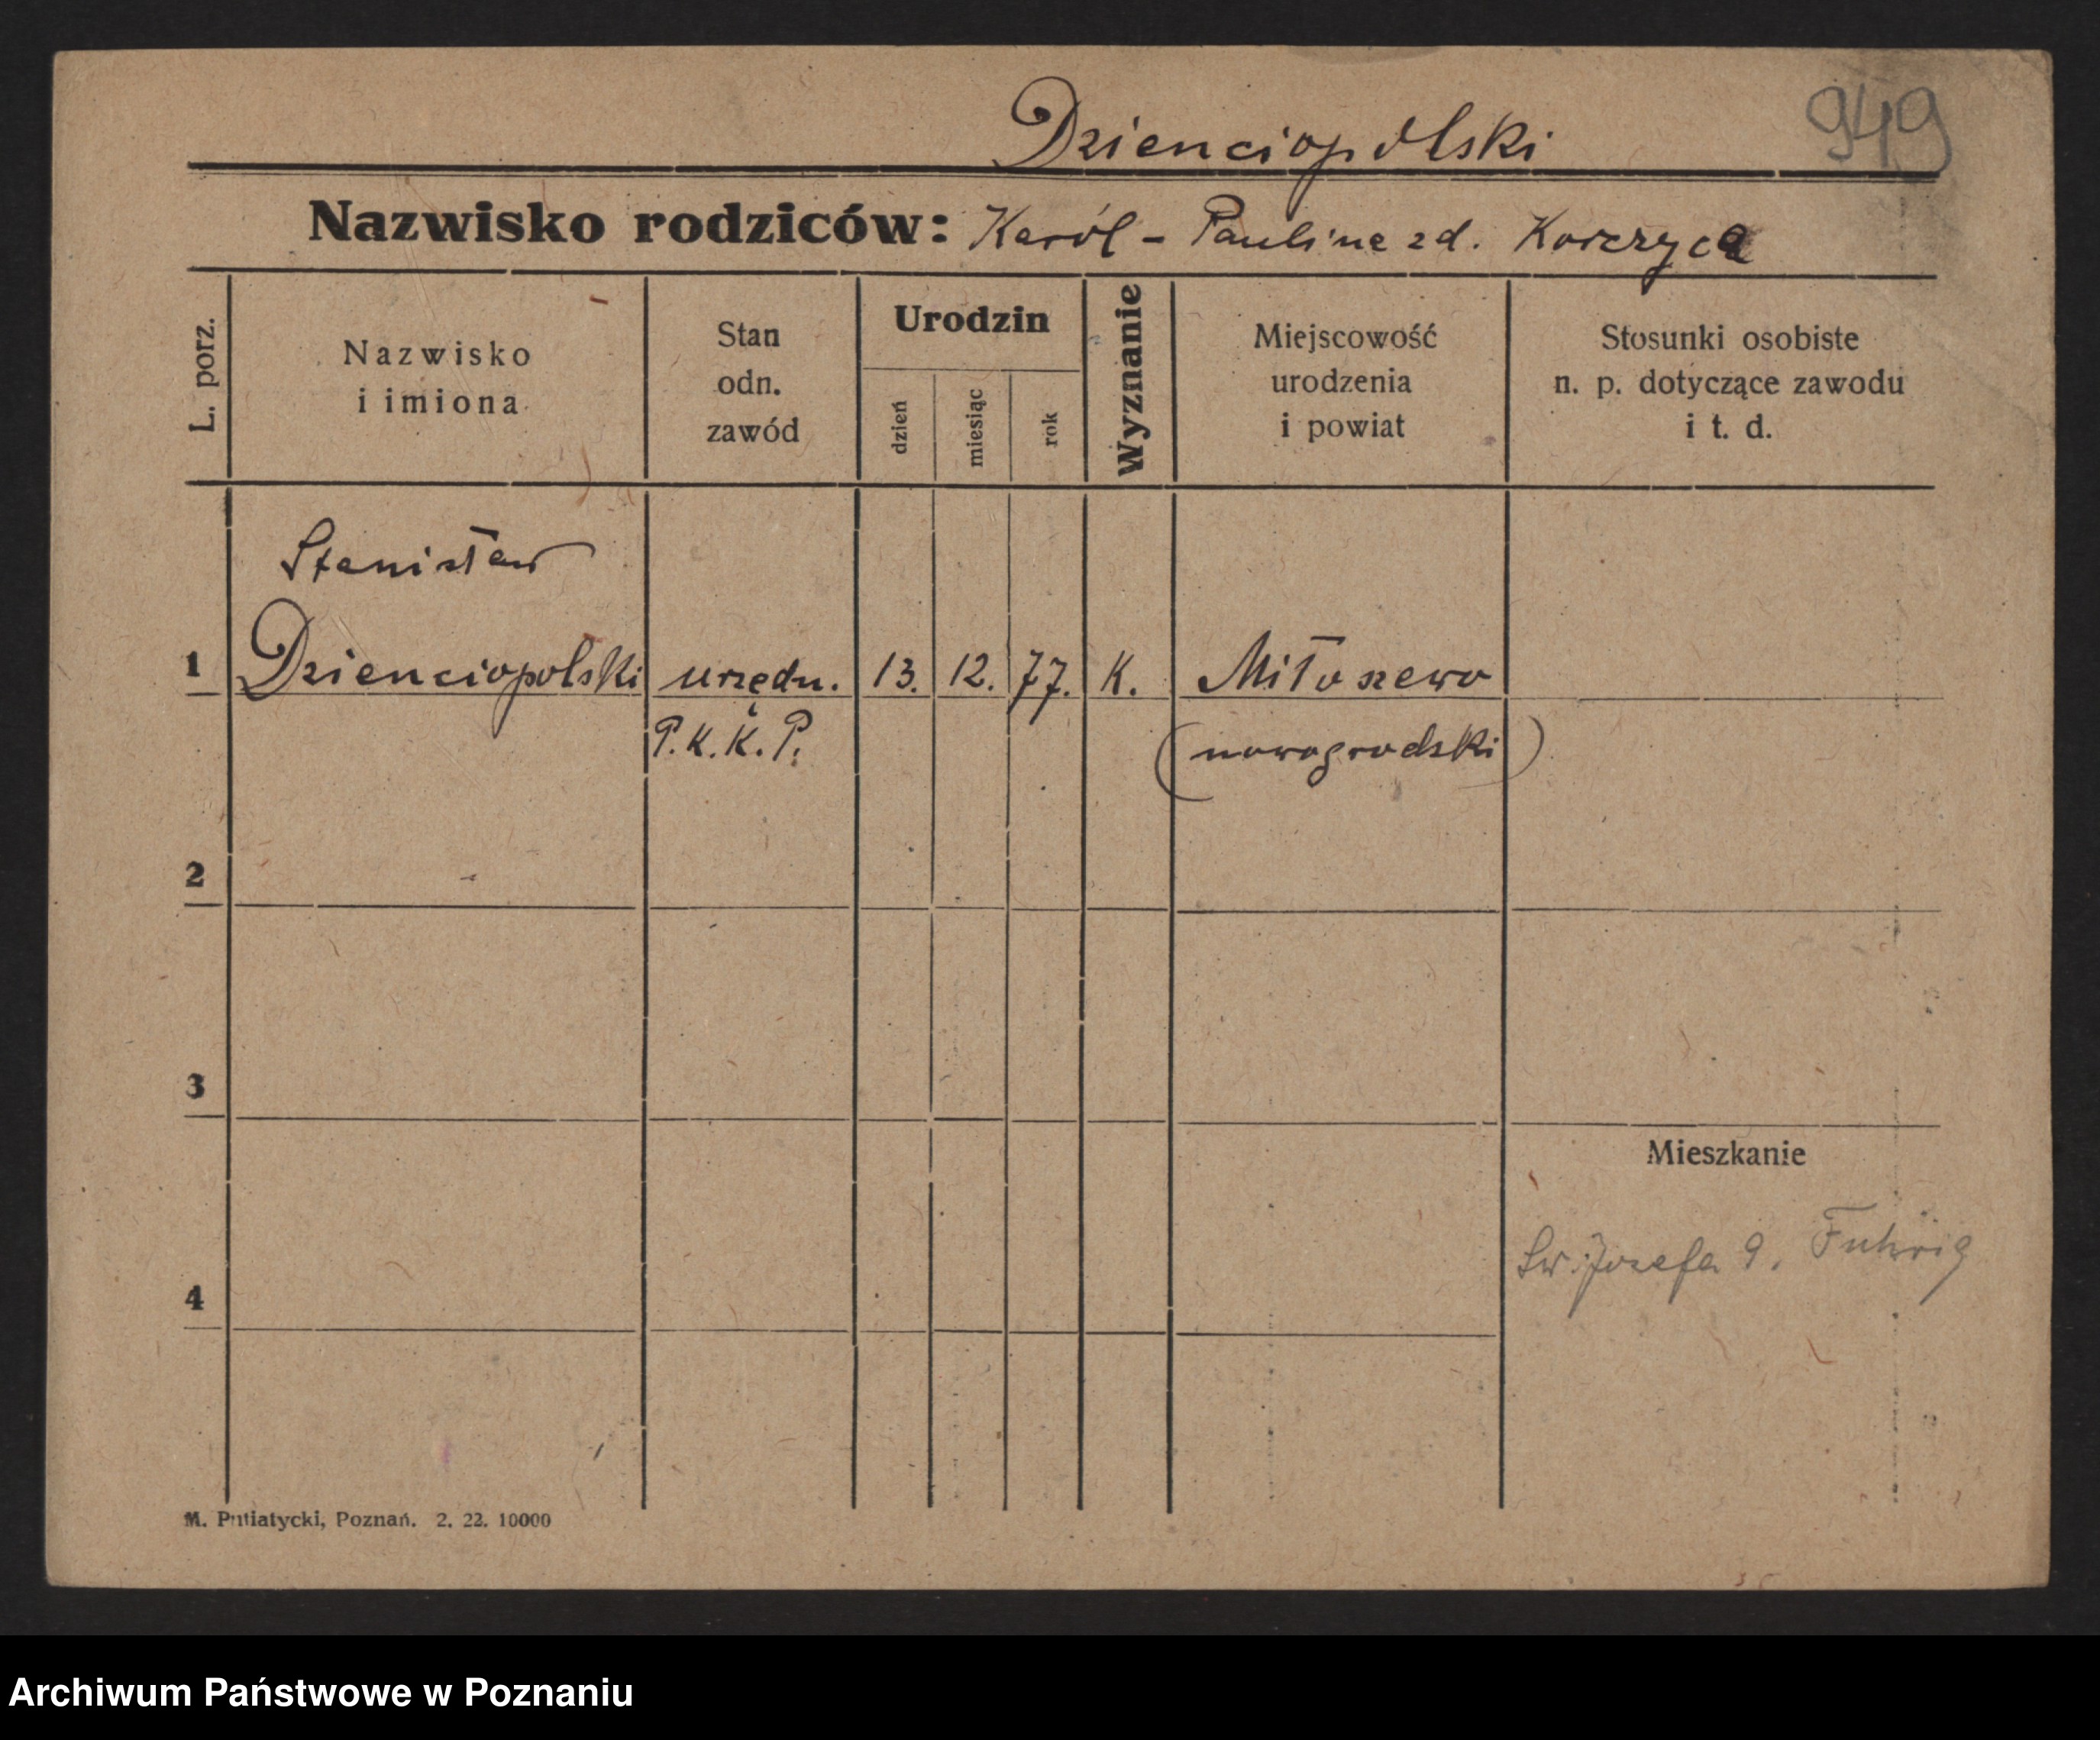 949
Dzienciopolski
Nazwisko rodziców: Karól - Paulina zd. Korczyca
L. porz.
Nazwisko i imiona
Stan odn. zawód
Urodzin
dzień
miesiąc
rok
Wyznanie
Miejscowość urodzenia i powiat
Stosunki osobiste n. p. dotyczące zawodu i t. d.
Stanisław
1 Dzienciopolski urzędn. 13. 12. 77. K. Miłoszewo
P.K.K.P. (nowogrodski)
2
3
Mieszkanie
Św. Józefa 9. Fuhrig
4
M. Putiatycki, Poznań. 2. 22. 10000
Archiwum Państwowe w Poznaniu